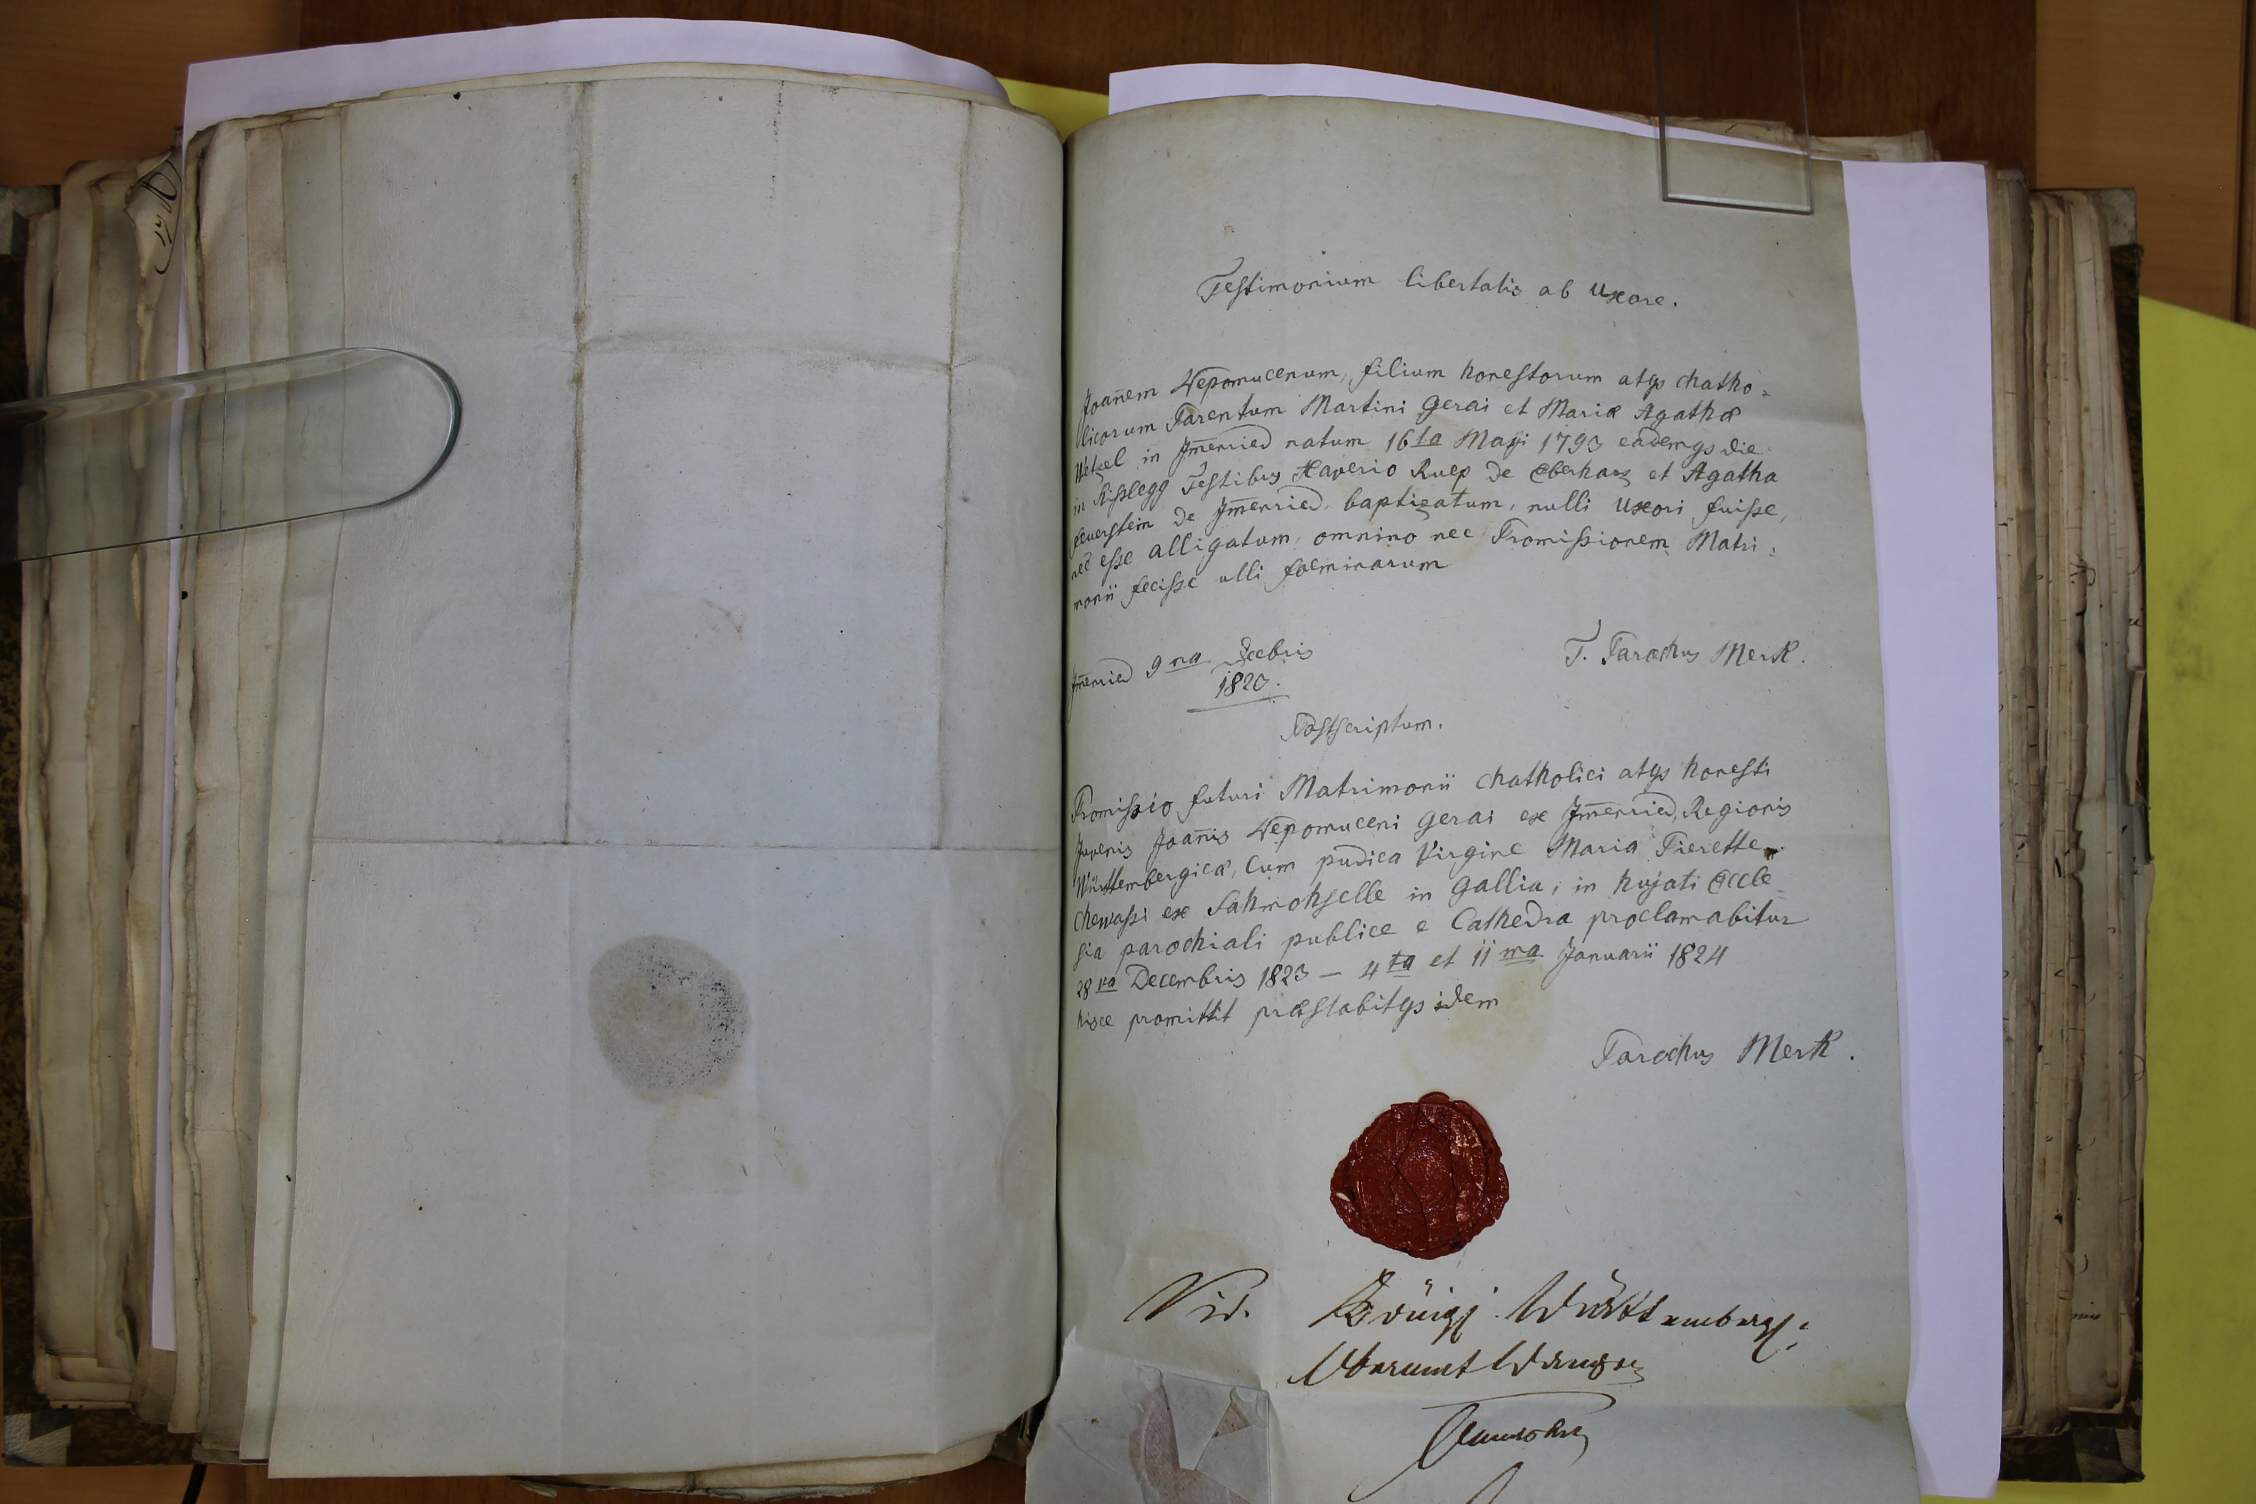 Testimonium libertatis ab Uxore.
Joañem Nepomucenum, filium honestorum atqs chatho-
licorum Parentum Martini Gerai et Mariæ Agathæ
Wetzel in Jm̃enried natum 16ta Maji 1793 eademqs die
in Kißlegg Testibus Xaverio Ruep de Eberharz et Agatha
feuerstein de Jm̃enried, baptizatum, nulli Uxori fuisse,
nec esse alligatum, omnino nec Promissionem Matri-
monii fecisse ulli foeminarum
Jm̃enried 9na Decbris
1823.
T. Parochus Merk.
Postscriptum.
Promissio futuri Matrimonii chatholici atqs honesti
Juvenis Joañis Nepomuceni Gerai ex Jm̃enried, Regionis
Württembergicæ, cum pudica Virgine Maria Pierette
Chewassi ex Sahmohselle in Gallia, in hujati Eccle-
sia parochiali publice e Cathedra proclamabitur
28va Decembris 1823 — 4ta et 11ma Januarii 1824
hisce promittit præstabitqs idem
Parochus Merk.
Vid. Königl. Württembergs:
Oberamt Wangen